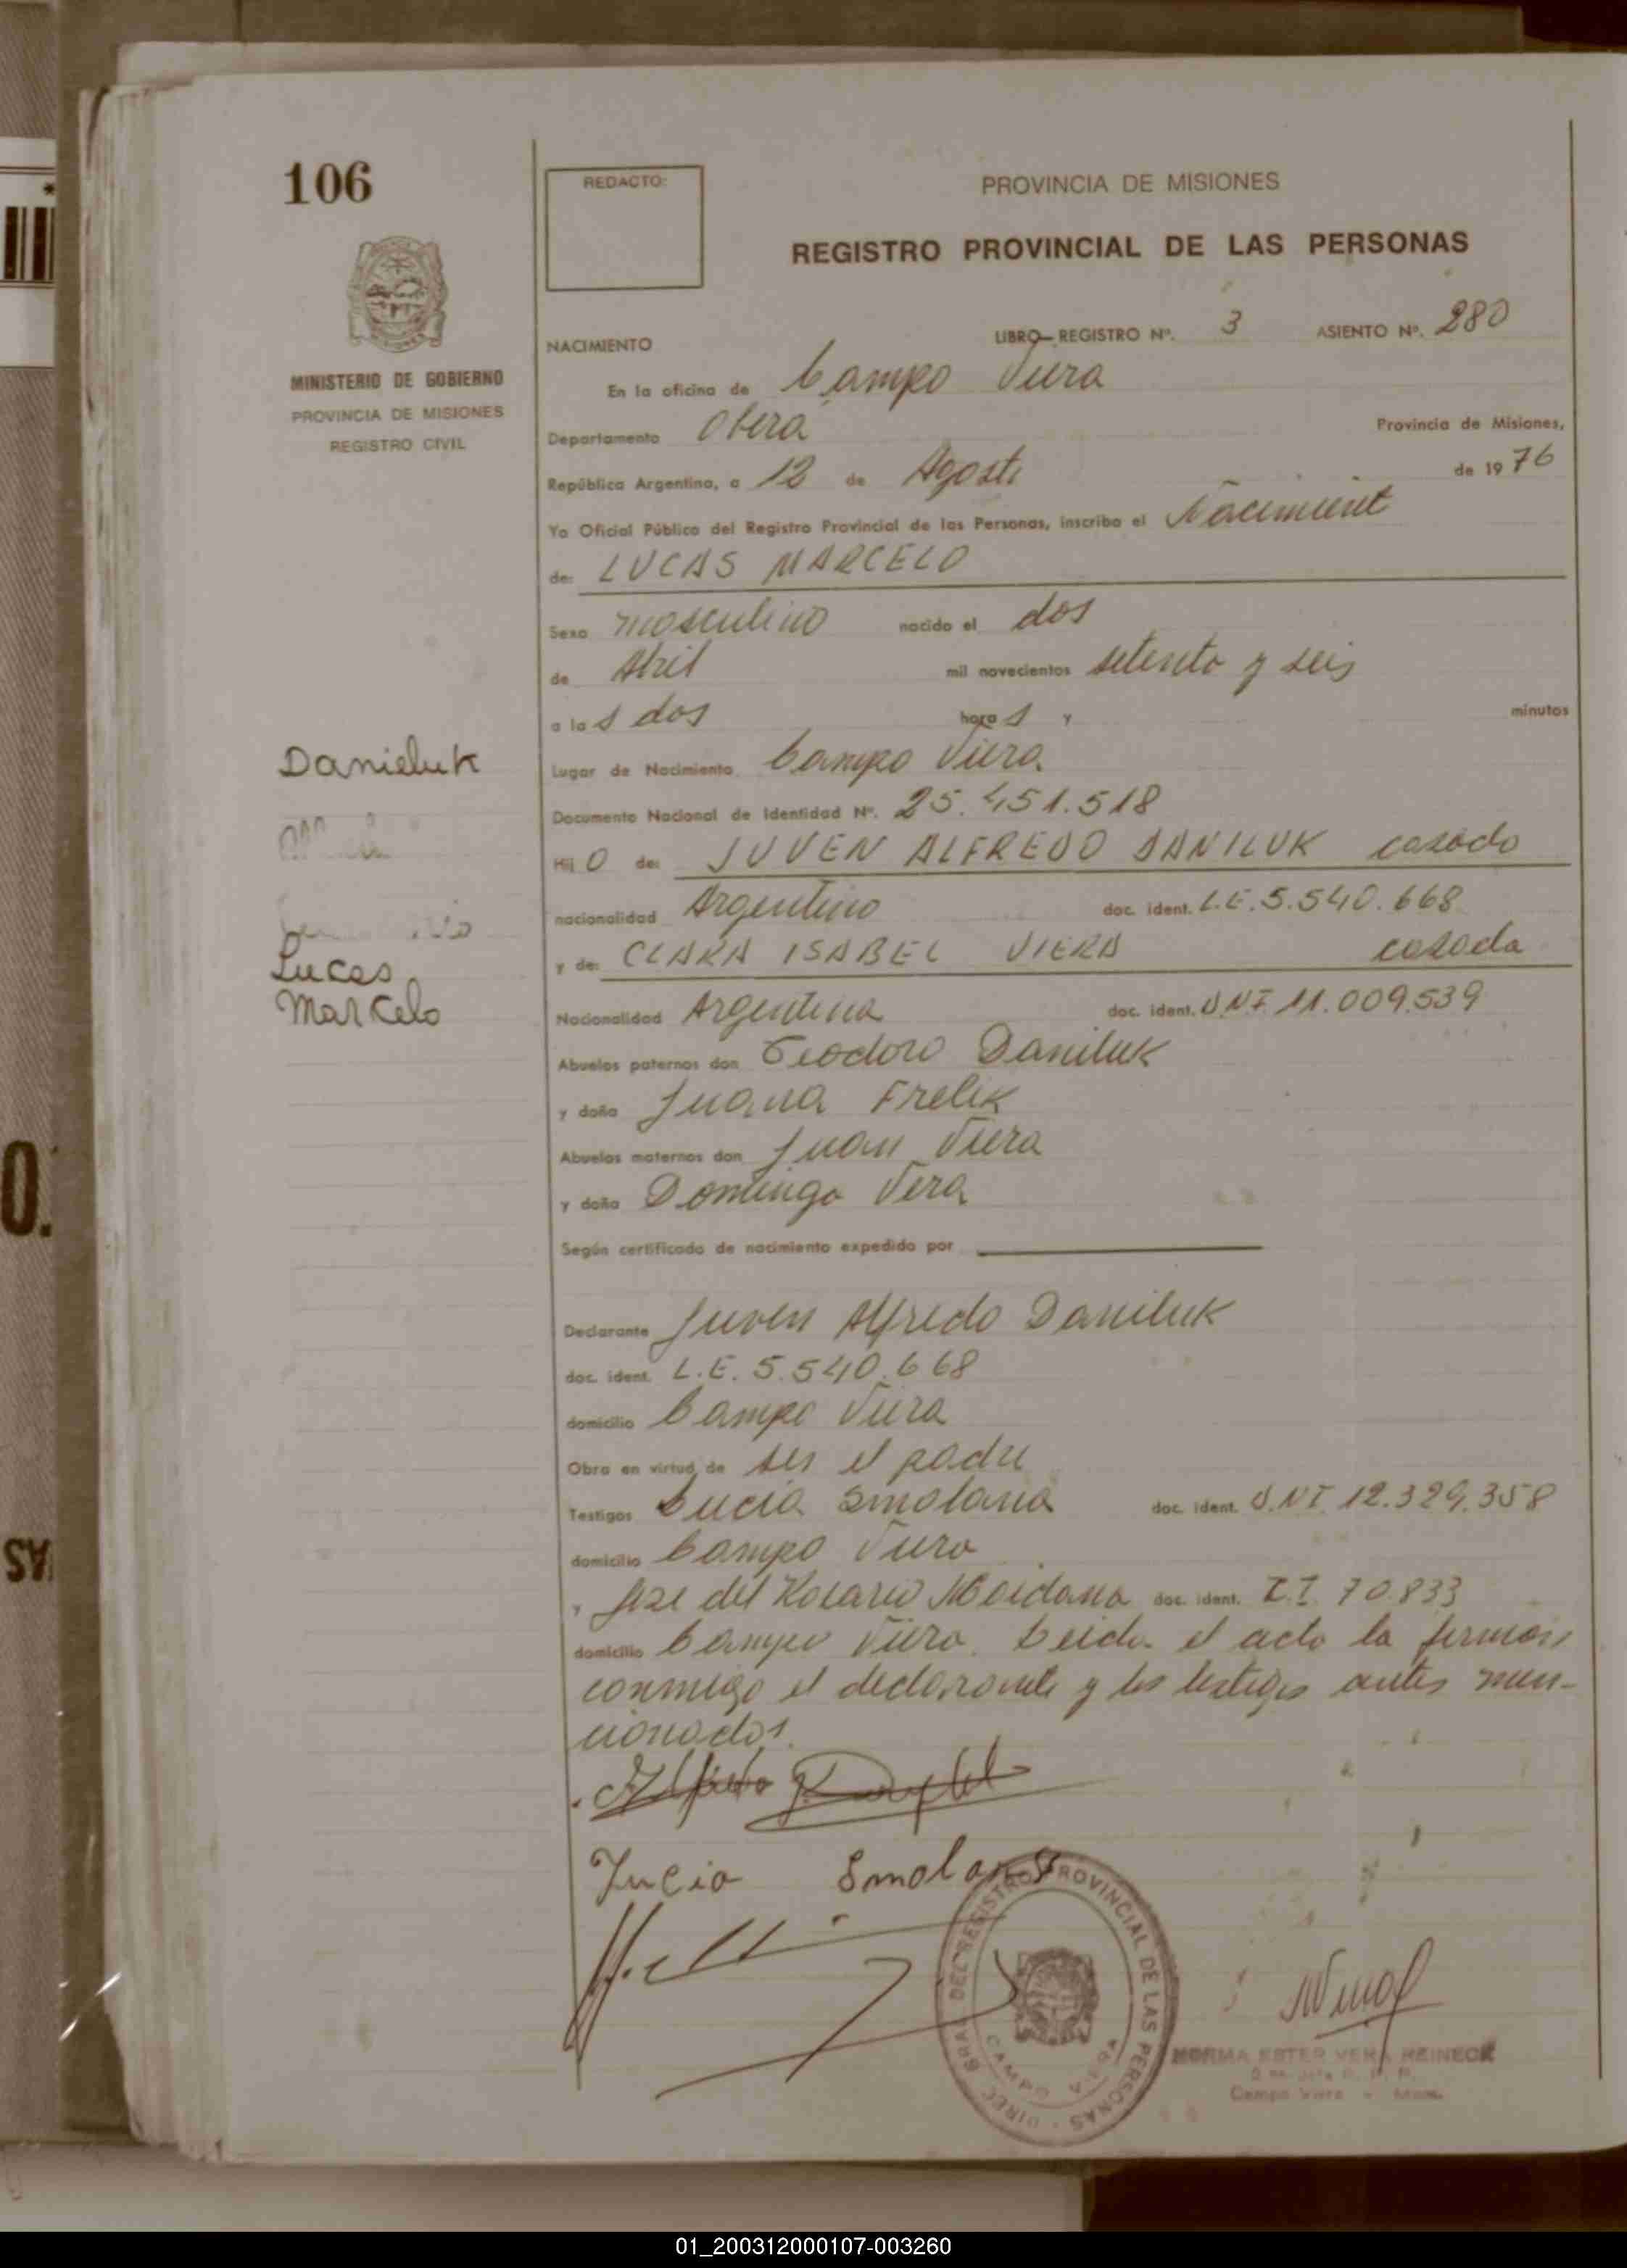 106
REDACTO:
PROVINCIA DE MISIONES
REGISTRO PROVINCIAL DE LAS PERSONAS
MINISTERIO DE GOBIERNO
PROVINCIA DE MISIONES
REGISTRO CIVIL
NACIMIENTO LIBRO-REGISTRO Nº. 3 ASIENTO Nº. 280
En la oficina de Campo Viera
Departamento Oberá Provincia de Misiones,
República Argentina, a 12 de Agosto de 1976
Yo Oficial Público del Registro Provincial de las Personas, inscribo el Nacimient
de: LUCAS MARCELO
Sexo masculino nacido el dos
de Abril mil novecientos setenta y seis
a las dos horas y minutos
Lugar de Nacimiento Campo Viera
Documento Nacional de Identidad Nº. 25.451.518
Hijo de: JUVEN ALFREDO DANILUK casado
nacionalidad Argentino doc. ident. L.E. 5.540.668
y de: CLARA ISABEL VIERA casada
Nacionalidad Argentina doc. ident. D.N.I. 11.009.539
Abuelos paternos don Teodoro Daniluk
y doña Juana Frelik
Abuelos maternos don Juan Viera
y doña Dominga Vera
Según certificado de nacimiento expedido por
Danieluk
Lucas
Marcelo
Declarante Juven Alfredo Daniluk
doc. ident. L.E. 5.540.668
domicilio Campo Viera
Obra en virtud de ser el padre
Testigos Lucia Smolana doc. ident. D.N.I. 12.329.358
domicilio Campo Viera
y José del Rosario Maidana doc. ident. C.I. 70.833
domicilio Campo Viera. Leida el acta la firman
conmigo el declarante y los testigos antes men-
cionados.
Lucia Smolana
DIREC. GRAL. DEL REGISTRO PROVINCIAL DE LAS PERSONAS
CAMPO VIERA
NORMA ESTER VERA REINECK
Campo Viera
01_200312000107-003260